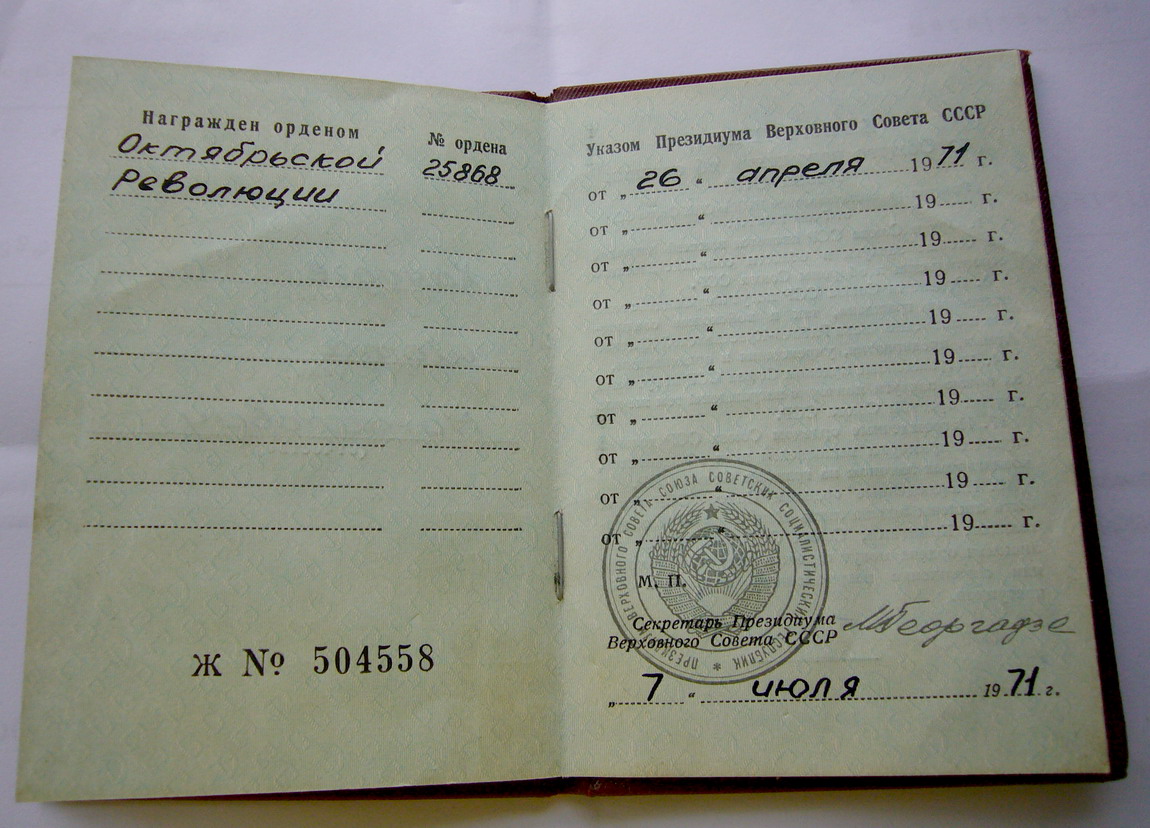 Награжден орденом
№ ордена
Октябрьской
25868
Революции
Ж № 504558
Указом Президиума Верховного Совета СССР
от „ 26 “ апреля 1971 г.
от „ “ 19 г.
от „ “ 19 г.
от „ “ 19 г.
от „ “ 19 г.
от „ “ 19 г.
от „ “ 19 г.
от „ “ 19 г.
от „ “ 19 г.
от „ “ 19 г.
ПРЕЗИДИУМ ВЕРХОВНОГО СОВЕТА СОЮЗА СОВЕТСКИХ СОЦИАЛИСТИЧЕСКИХ РЕСПУБЛИК *
М. П.
Секретарь Президиума
Верховного Совета СССР
МГеоргадзе
„ 7 “ июля 1971 г.